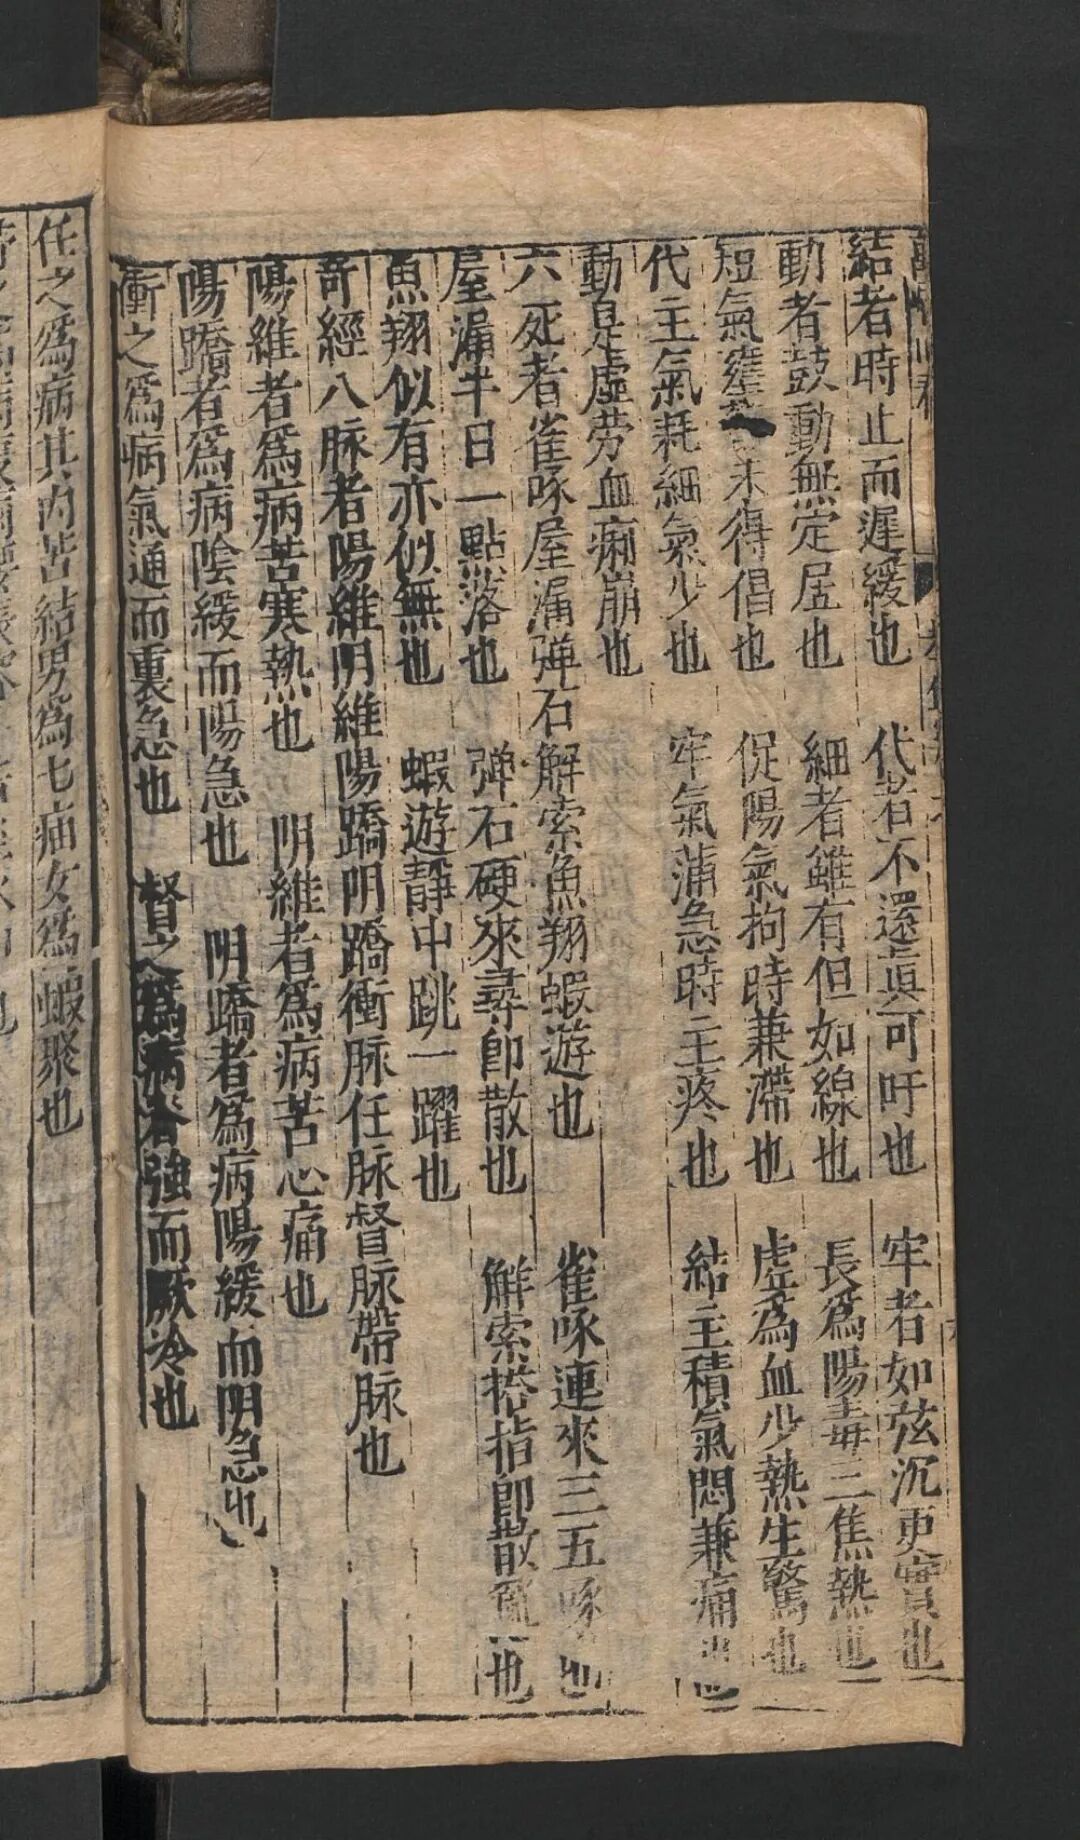 結者時止而遲緩也　代者不還真可吁也　牢者如弦沉更實也
動者鼓動無定居也　細者雖有但如線也　長為陽毒三焦熱也
短氣壅　未得倡也　促陽氣拘時兼滯也　虛為血少熱生驚也
代主氣耗細氣少也　牢氣滿急時主疼也　結主積氣悶兼痛也
動是虛勞血痢崩也
六死者雀啄屋漏彈石解索魚翔蝦遊也　雀啄連來三五啄也
屋漏半日一點落也　彈石硬來尋即散也　解索搭指即散亂也
魚翔似有亦似無也　蝦遊靜中跳一躍也
奇經八脉者陽維陰維陽蹻陰蹻衝脉任脉督脉帶脉也
陽維者為病苦寒熱也　陰維者為病苦心痛也
陽蹻者為病陰緩而陽急也　陰蹻者為病陽緩而陰急也
衝之為病氣通而裏急也　督之為病脊強而厥冷也
任之為病其內苦結男為七疝女為蝦聚也